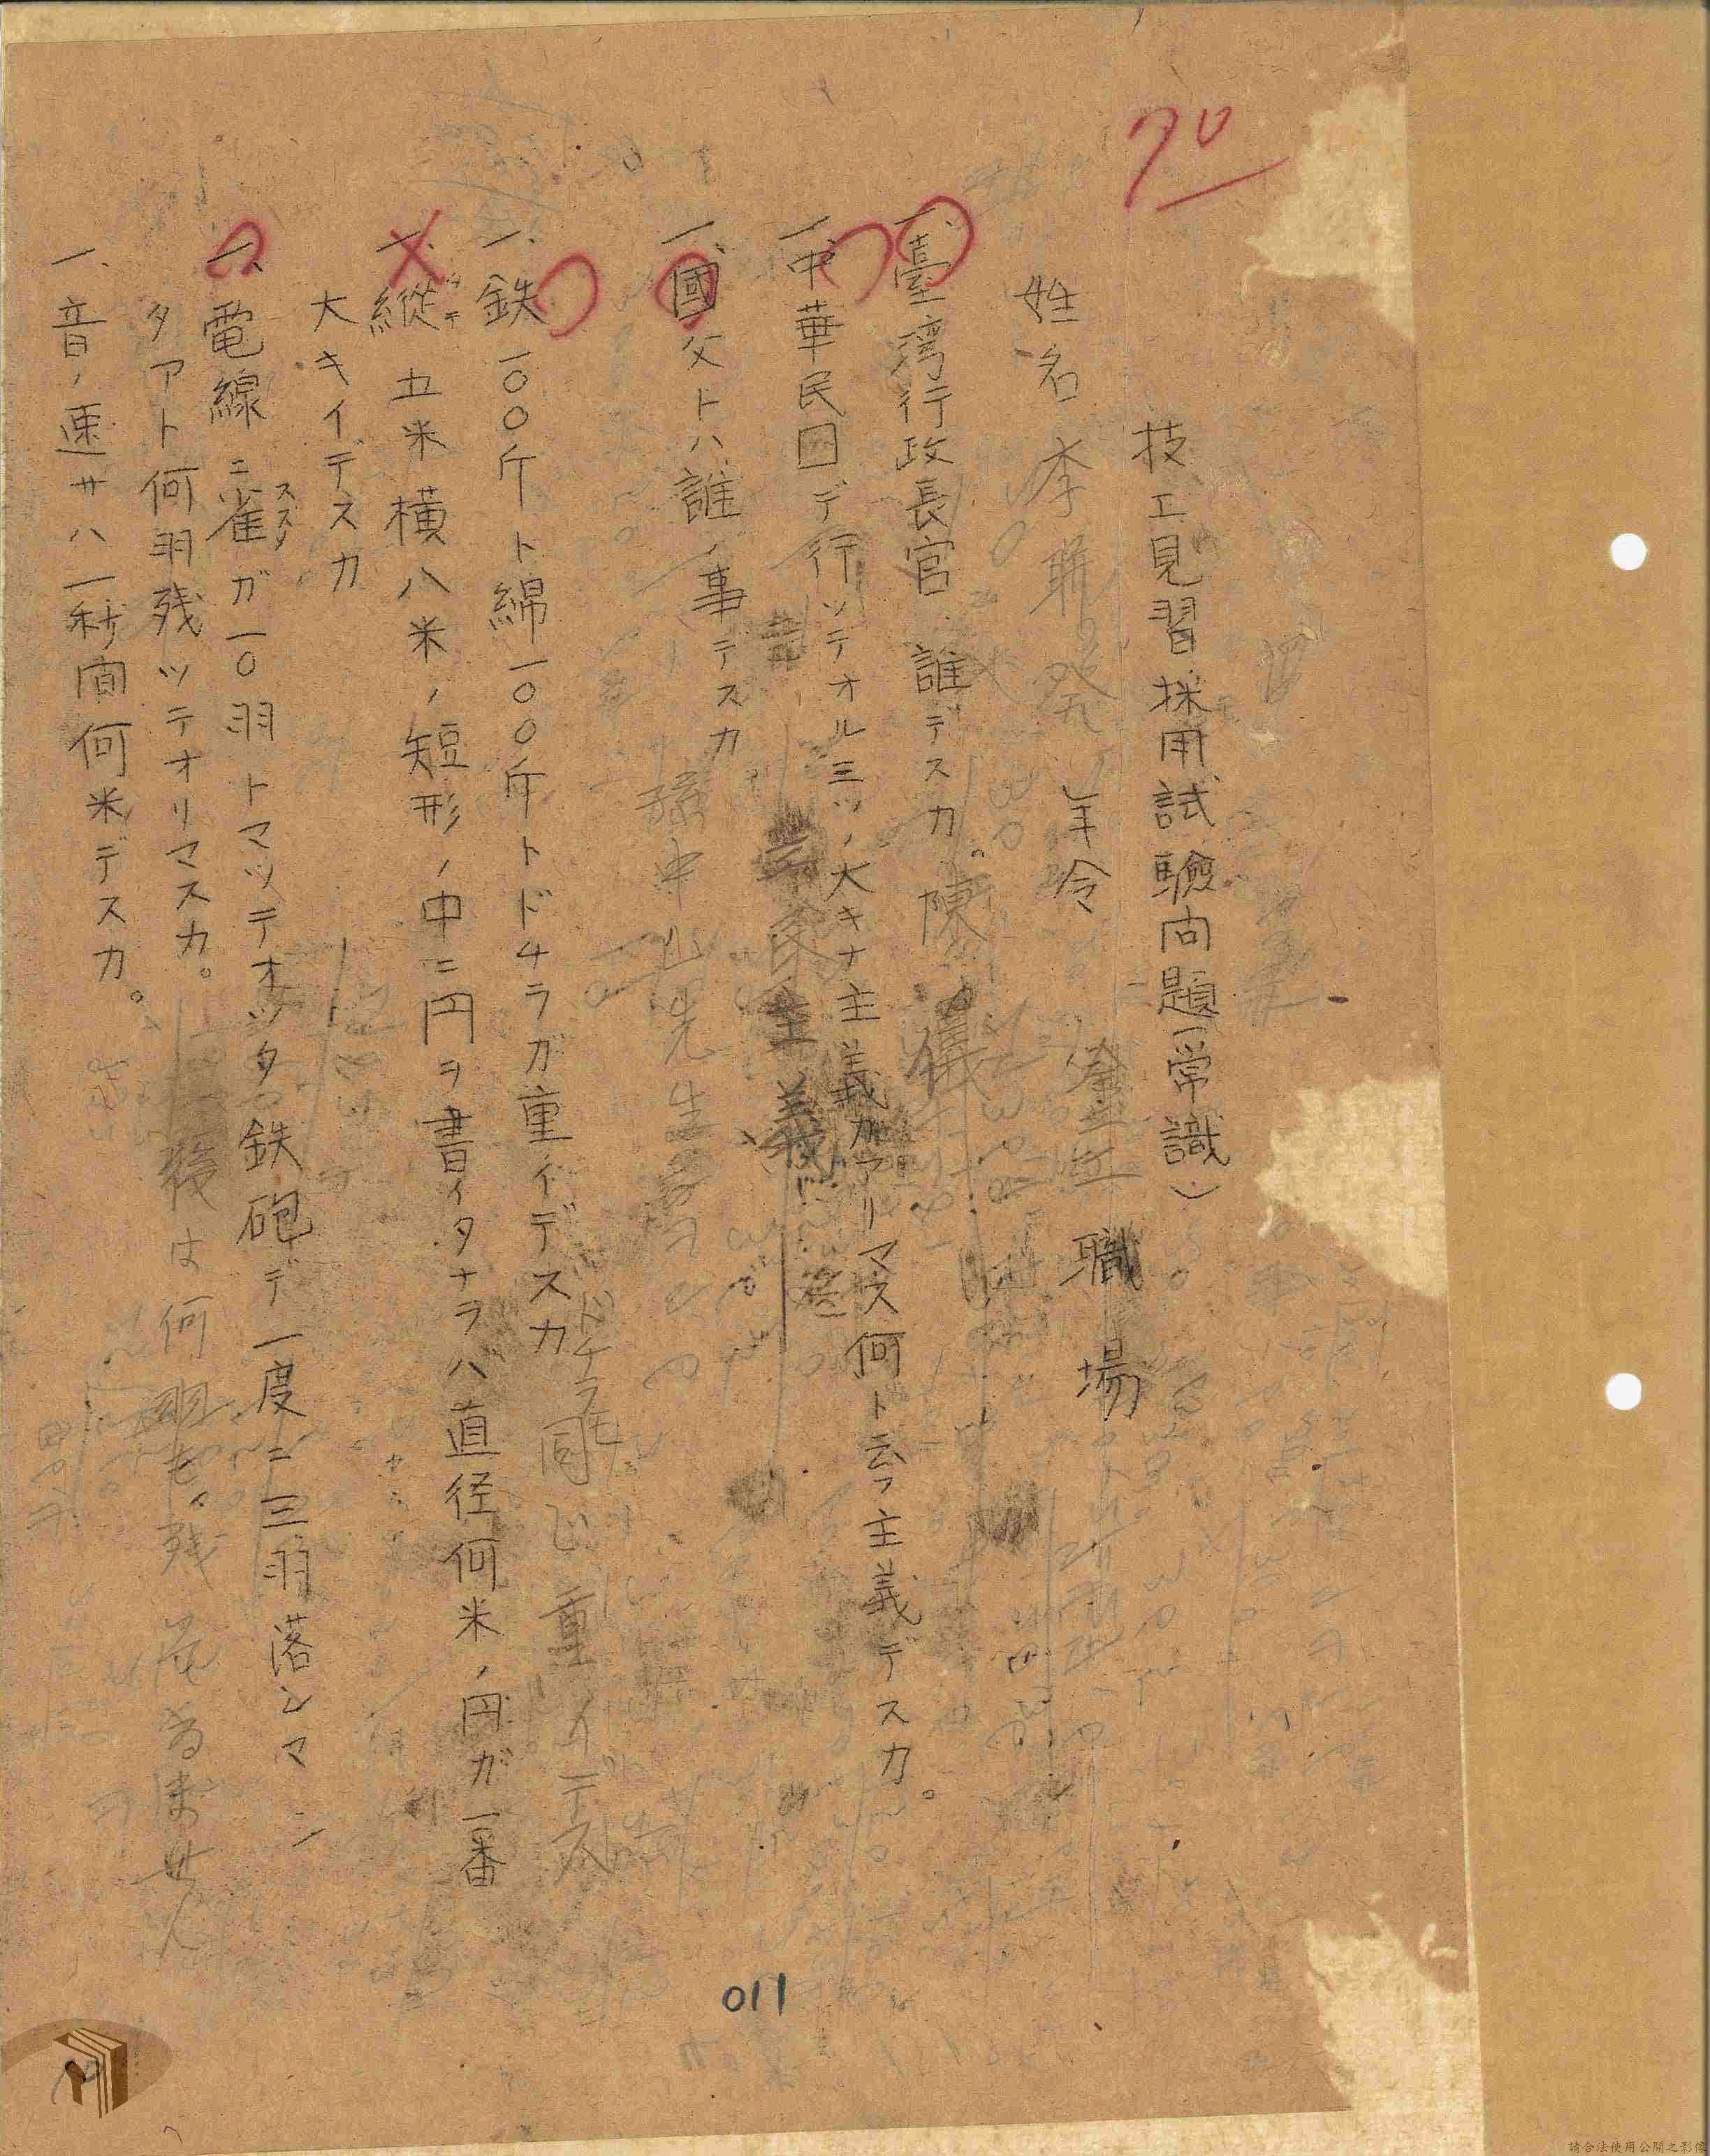 70
技工見習採用試驗问題(常識)
姓名 李 年令 職場
一、臺湾行政長官ハ誰デスカ。陳儀
一、中華民国デ行ッテオル三ツノ大キナ主義ガアリマス何ト云フ主義デスカ。
主義
一、國父トハ誰ノ事デスカ
孫中山先生
一、鉄一〇〇斤ト綿一〇〇斤トドチラガ重イデスカ
ドチラモ同じ重イデス
一、縦五米横八米ノ短形ノ中ニ円ヲ書イタナラバ直径何米ノ円ガ一番
タテ
大キイデスカ
一、電線ニ雀ガ一〇羽トマッテオッタ鉄砲デ一度ニ三羽落シマシ
スズメ
タアト何羽残ッテオリマスカ。
後は何羽も残
一、音ノ速サハ一秒间何米デスカ。
011
請合法使用公開之影像